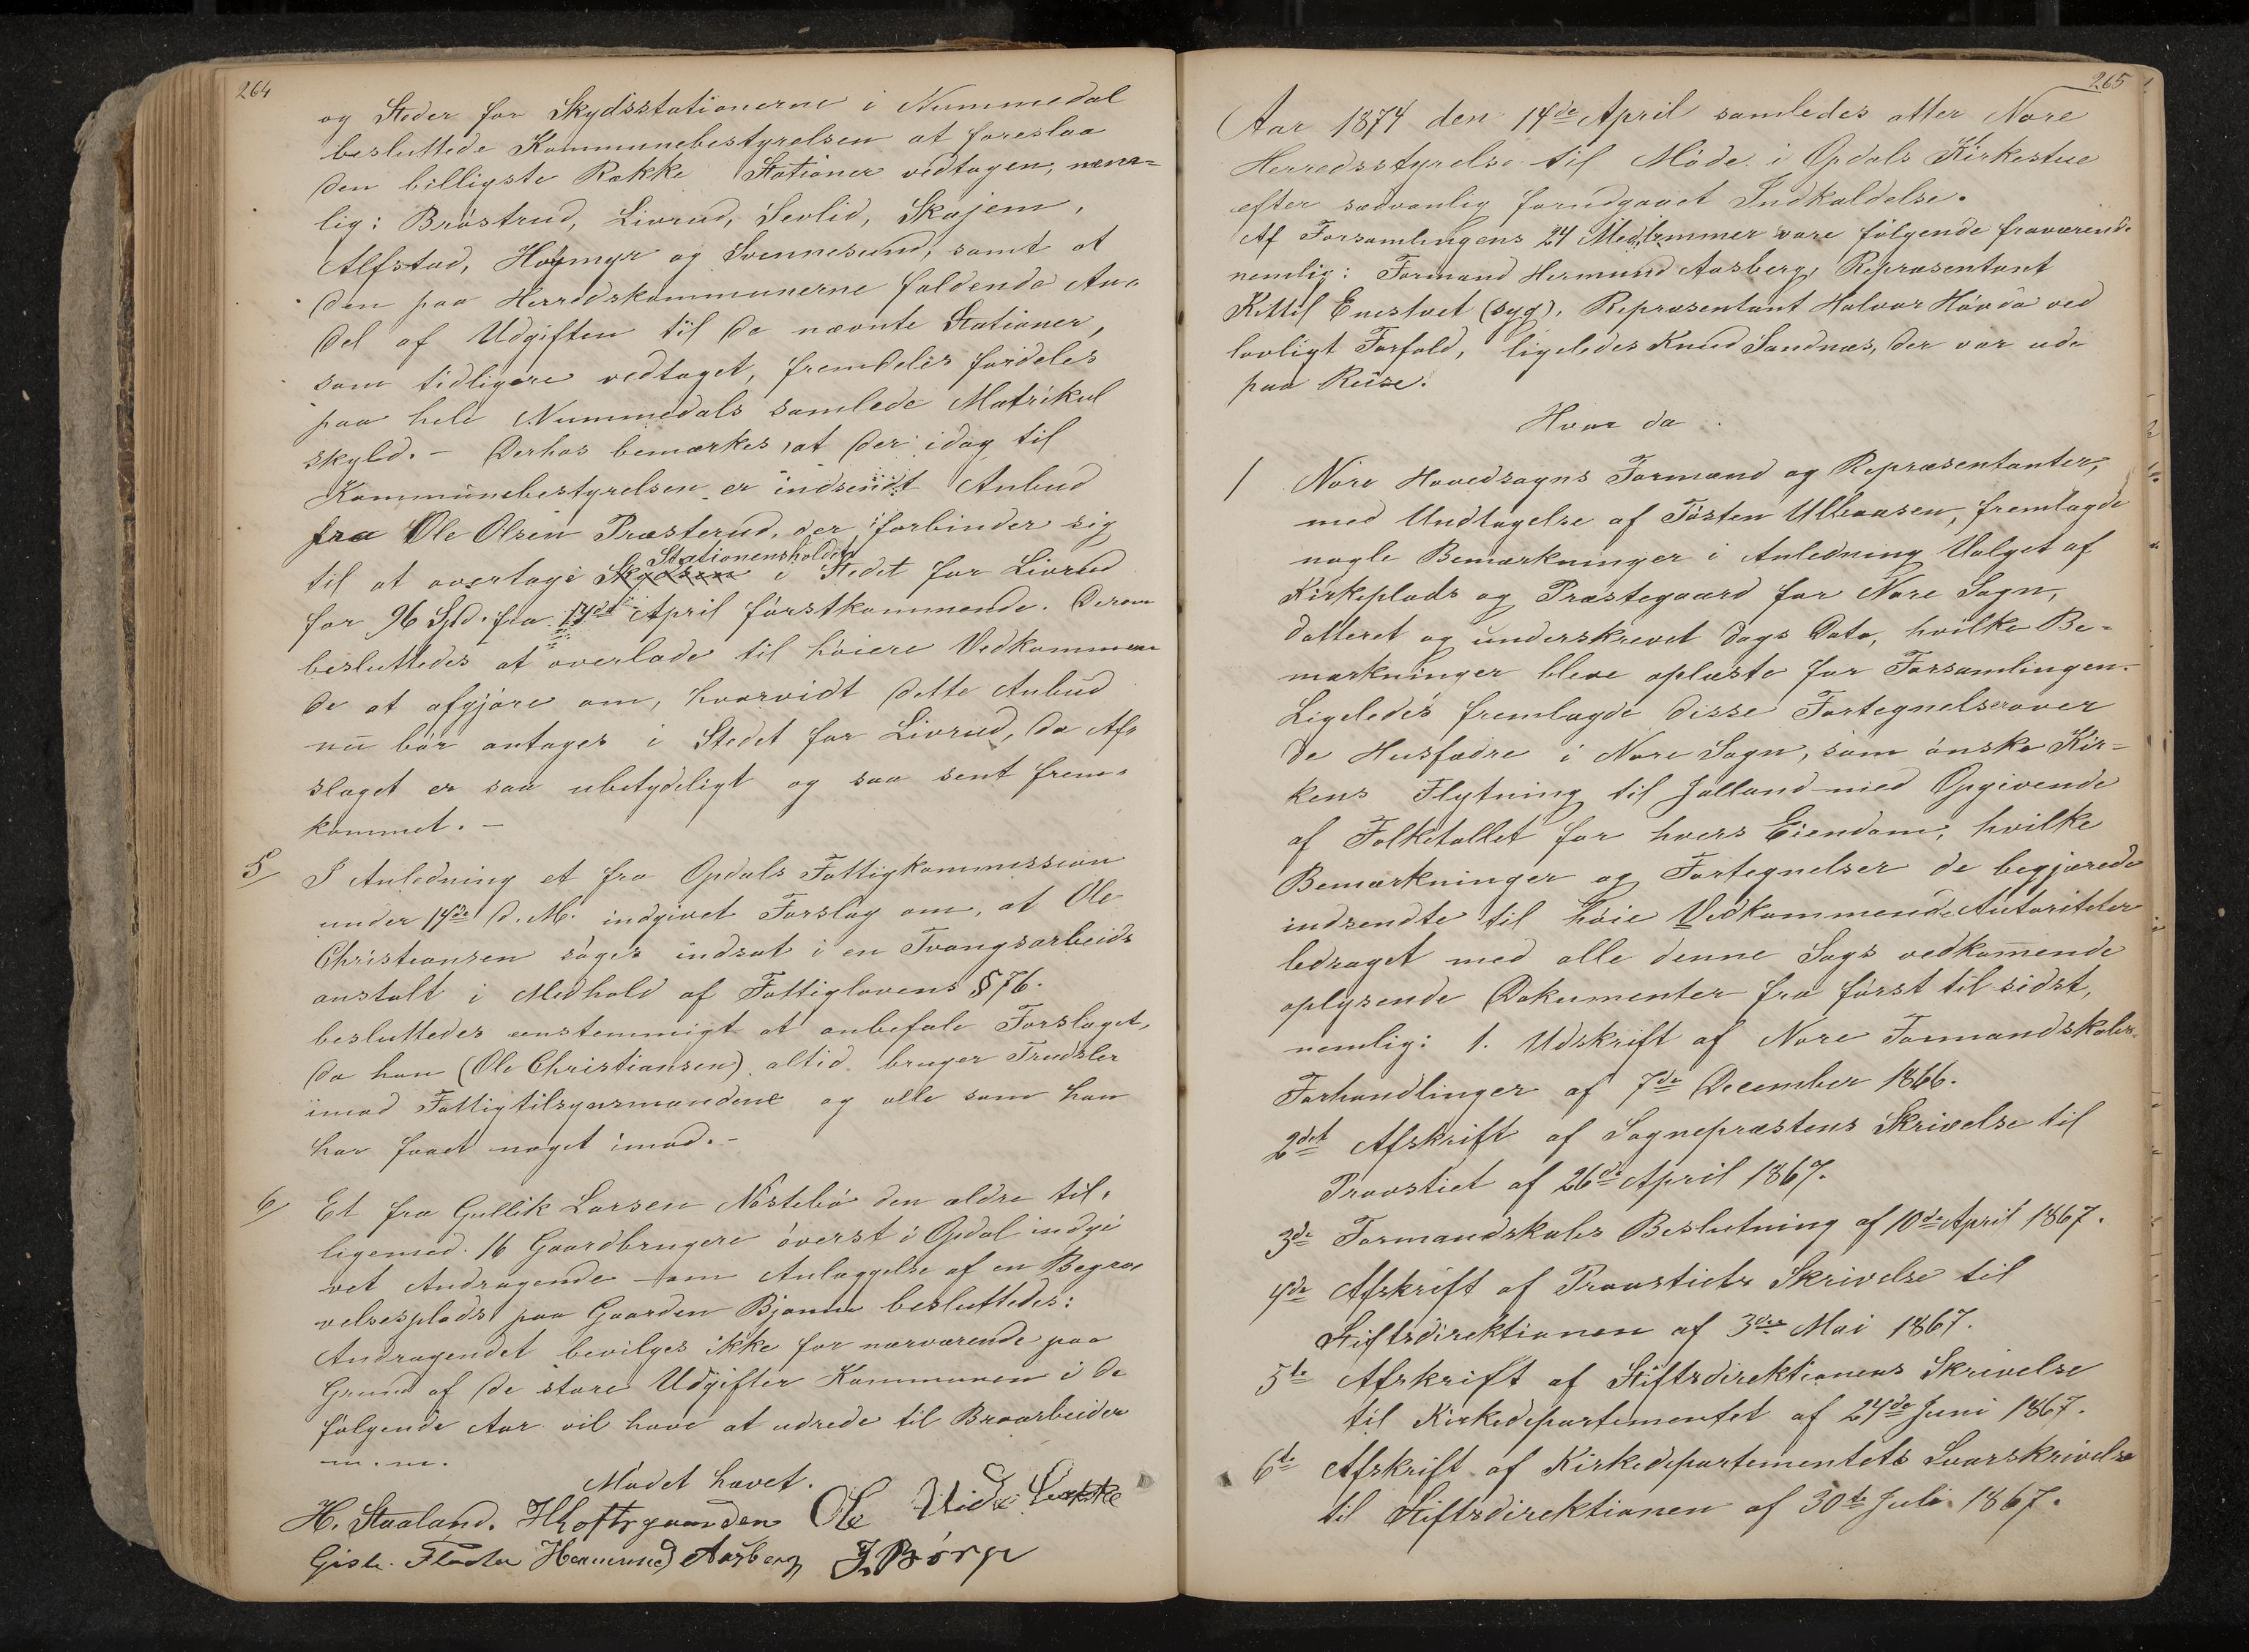 264
og Steder for Skydsstationerne i Nummedal
besluttede Kommunebestyrelsen at foreslaa
den billigste Række Stationer vedtagen, næm=
lig: Bröstrud, Livrud, Sevlid, Skajem,
Alfstad, Hoymyr og Svennesund, samt at
den paa Herredskommunerne faldende An=
del af Udgiften til de nævnte Stationer,
som tidligere vedtaget, fremdeles fordeles
paa hele Nummedals samlede Matrikul
skyld. – Derhos bemærkes, at der idag til
Kommunebestyrelsen er indsendt Anbud
fra Ole Olsen Præsterud, der forbinder sig
Stationensholdet
til at overtage Skydsen i Stedet for Livrud
for 96 Spd. fra 14de April förstkommende. Derom
besluttedes at overlade til höiere Vedkommen
de at afgjöre om, hvorvidt dette Anbud
nu bör antages i Stedet for Livrud, da Af=
slaget er saa ubetydeligt og saa sent frem=
kommet. –
5/ I Anledning et fra Opdals Fattigkommission
under 14de d. M. indgivet Forslag om, at Ole
Christiansen söges indsat i en Tvangsarbeids
anstalt i Medhold af Fattiglovens § 76.
besluttedes enstemmigt at anbefale Forslaget,
da han (Ole Christiansen) altid bruger Trudsler
imod Fattigtilsynsmændene og alle som han
har faaet noget imod. –
6/ Et fra Gullik Larsen Nöstebö den ældre til=
ligemed 16 Gaardbrugere överst i Opdal indgi
vet Andragende om Anlæggelse af en Begra=
velsesplads paa Gaarden Bjönnu besluttedes:
Andragendet bevilges ikke for nærværende paa
Grund af de store Udgifter Kommunen i de
fölgende Aar vil have at udrede til Broarbeider
m. m.
Mödet hævet.
H. Staaland. Ole
Hermund Aasberg J. Börge
265
Aar 1874 den 14de April samledes atter Nore
Herredsstyrelse til Möde i Opdals Kirkestue
efter sædvanlig forudgaaet Indkaldelse.
Af Forsamlingens 24 Medlemmer vare fölgende fraværende
nemlig: Formand Hermund Aasberg, Repræsentant
Kittil Enestvet (syg), Repræsentant Halvor Hövda ved
lovligt Forfald, ligeledes Knud Sandnæs, der var ude
paa Reise.
Hvor da
1 Nore Hovedsogns Formænd og Repræsentanter,
med Undtagelse af Tösten Ulbaasen, fremlagde
nogle Bemærkninger i Anledning Valget af
Kirkeplads og Præstegaard for Nore Sogn,
datteret og underskrevet Dags Dato, hvilke Be=
mærkninger bleve oplæste for Forsamlingen.
Ligeledes fremlagde disse Fortegnelser over
de Husfædre i Nore Sogn, som önske Kir=
kens Flytning til Jalland med Opgivende
af Folketallet for hvers Eiendom, hvilke
Bemærkninger og Fortegnelser de begjærede
indsendte til höie Vedkommende Autoriteter
ledsaget med alle denne Sags vedkommende
oplysende Dokumenter fra först til sidst,
nemlig: 1. Udskrift af Nore Formandskabs
Forhandlinger af 7de December 1866.
2det Afskrift af Sognepræstens Skrivelse til
Provstiet af 26de April 1867.
3de Formandskabs Beslutning af 10de April 1867.
4de Afskrift af Provstiets Skrivelse til
Stiftsdirektionen af 3die Mai 1867.
5te Afskrift af Stiftsdirektionens Skrivelse
til Kirkedepartementet af 24de Juni 1867.
6te Afskrift af Kirkedepartementets Svarskrivelse
til Stiftsdirektionen af 30te Juli 1867.